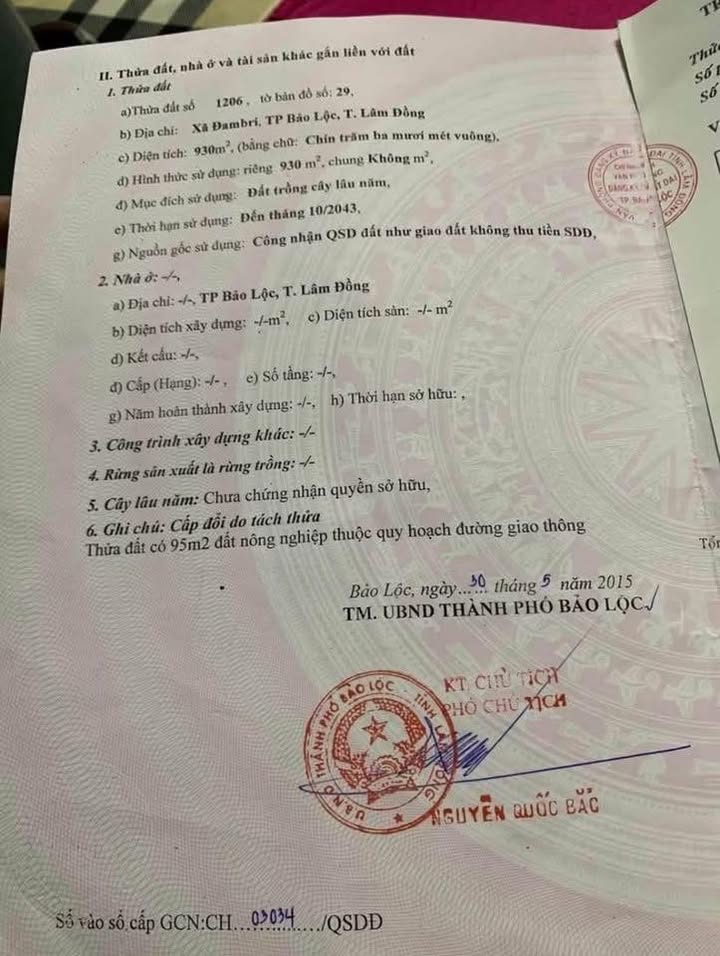 II. Thửa đất, nhà ở và tài sản khác gắn liền với đất
1. Thửa đất
a)Thửa đất số 1206 , tờ bản đồ số: 29,
b) Địa chỉ: Xã Đambri, TP Bảo Lộc, T. Lâm Đồng
c) Diện tích: 930m², (bằng chữ: Chín trăm ba mươi mét vuông),
d) Hình thức sử dụng: riêng 930 m², chung Không m²,
đ) Mục đích sử dụng: Đất trồng cây lâu năm,
e) Thời hạn sử dụng: Đến tháng 10/2043,
g) Nguồn gốc sử dụng: Công nhận QSD đất như giao đất không thu tiền SDĐ,
2. Nhà ở: -/-,
a) Địa chỉ: -/-, TP Bảo Lộc, T. Lâm Đồng
b) Diện tích xây dựng: -/-m², c) Diện tích sàn: -/- m²
d) Kết cấu: -/-,
đ) Cấp (Hạng): -/- , e) Số tầng: -/-,
g) Năm hoàn thành xây dựng: -/-, h) Thời hạn sở hữu: ,
3. Công trình xây dựng khác: -/-
4. Rừng sản xuất là rừng trồng: -/-
5. Cây lâu năm: Chưa chứng nhận quyền sở hữu,
6. Ghi chú: Cấp đổi do tách thửa
Thửa đất có 95m2 đất nông nghiệp thuộc quy hoạch đường giao thông
Bảo Lộc, ngày...30... tháng 5 năm 2015
TM. UBND THÀNH PHỐ BẢO LỘC
KT. CHỦ TỊCH
PHÓ CHỦ TỊCH
U.B.N.D THÀNH PHỐ BẢO LỘC - TỈNH LÂM ĐỒNG
NGUYỄN QUỐC BẮC
Số vào sổ cấp GCN:CH...03034.../QSDĐ
Thửa
Số
Số